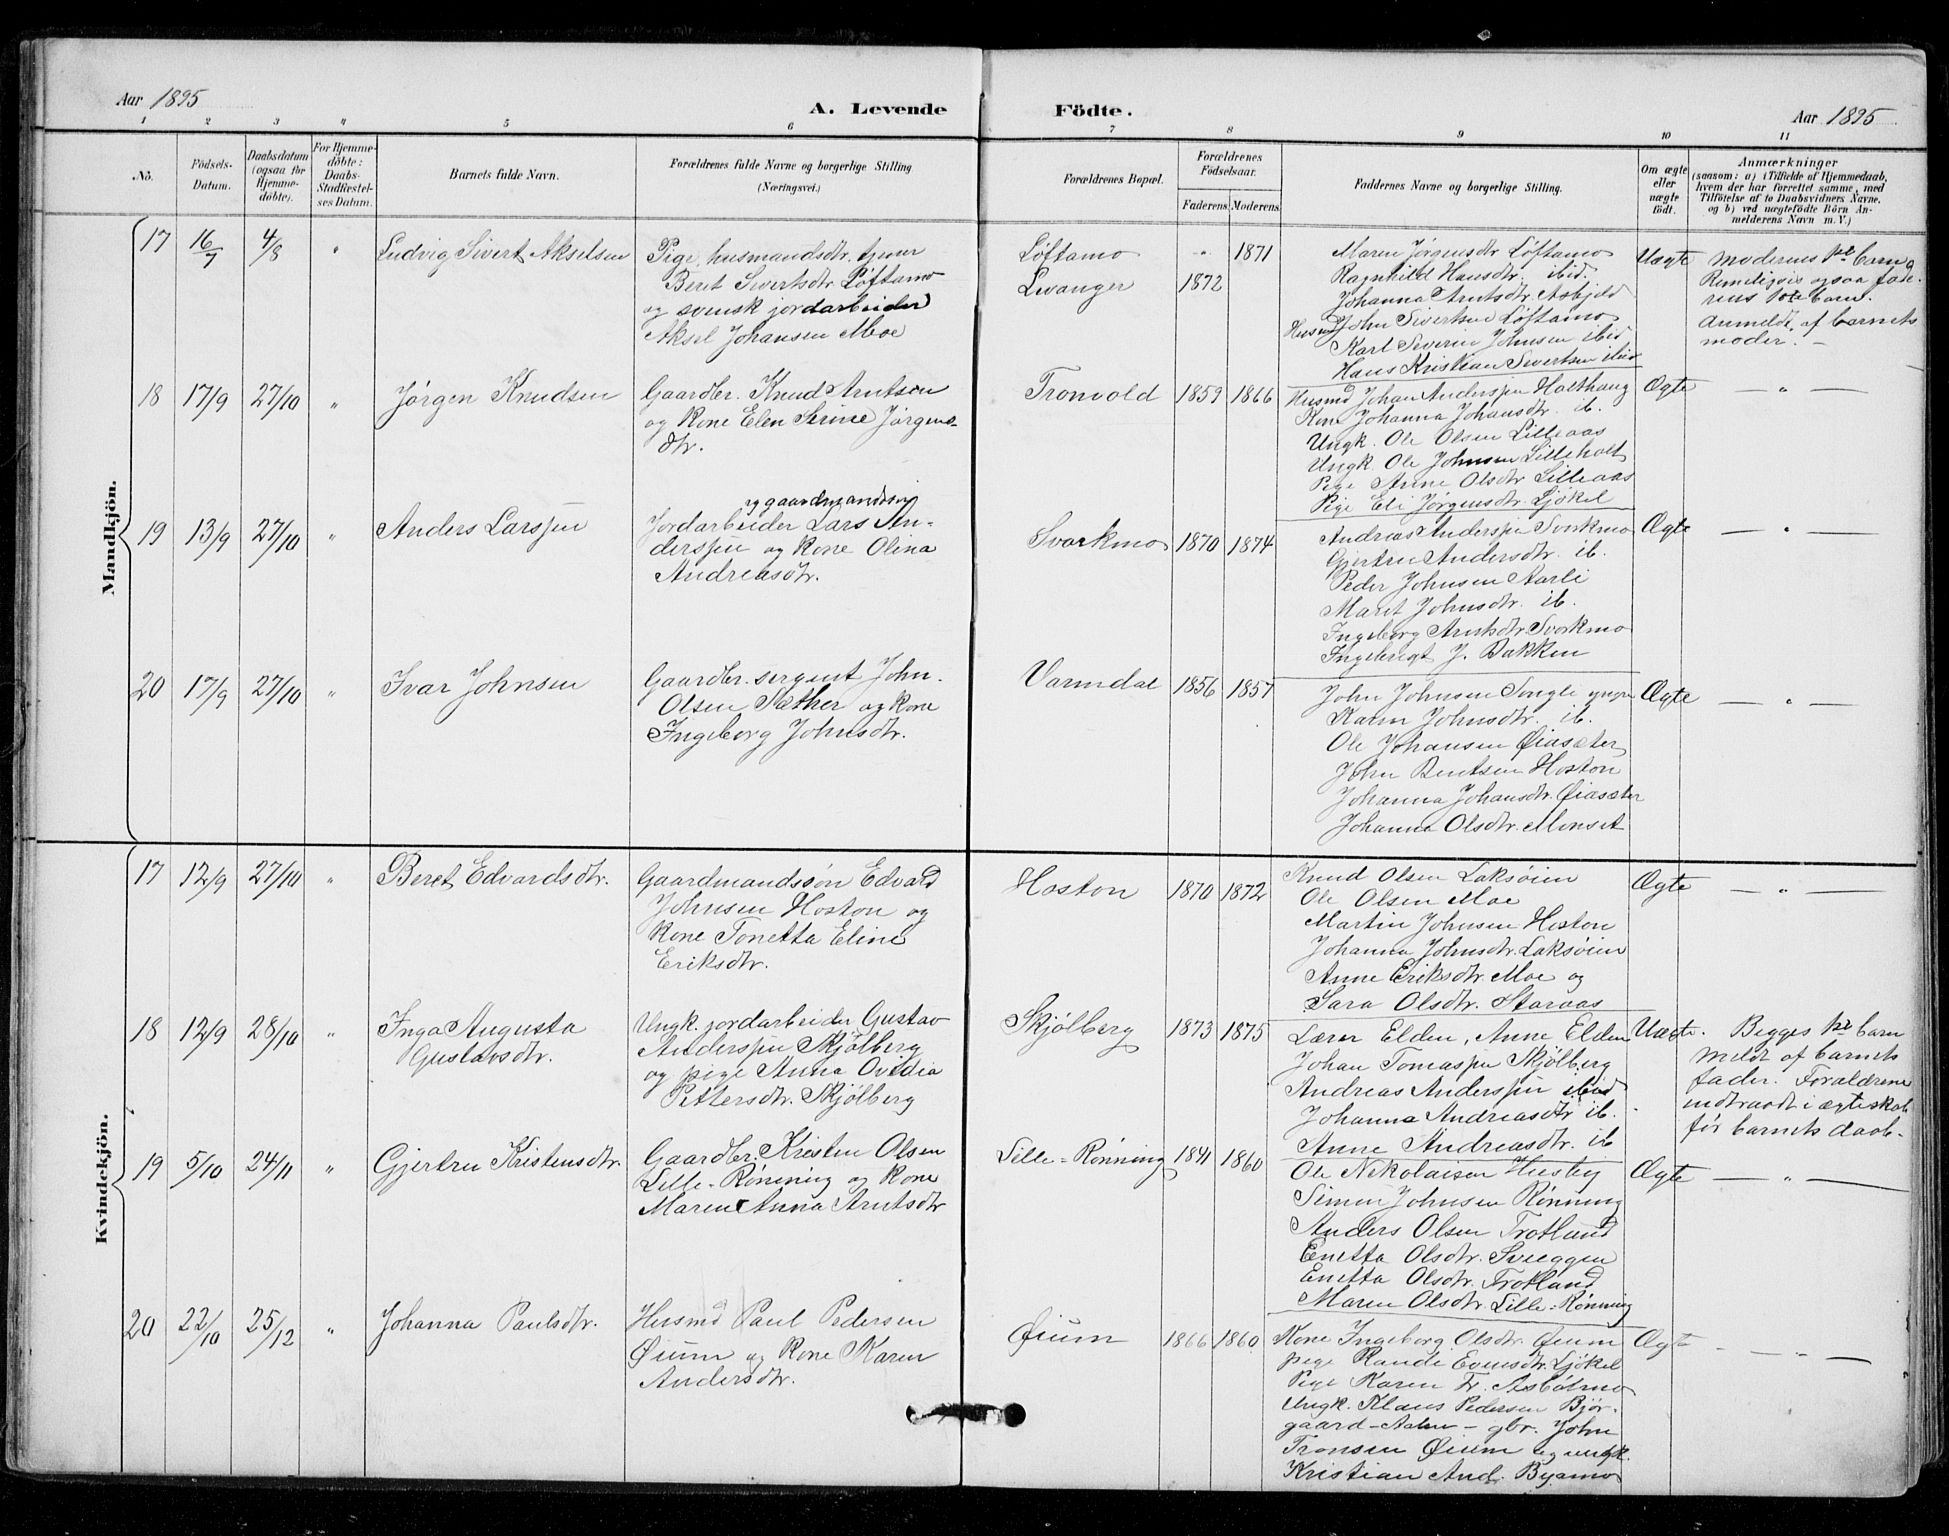 Aar 1895
A. Levende Födte.
Aar 1895
1 2 3 4 5 6 7 8 9 10 11
No.
Födsels-
Datum.
Daabsdatum
(ogsaa for
Hjemme-
döbte).
For Hjemme-
döbte:
Daabs-
Stadfæstel-
ses Datum.
Barnets fulde Navn.
Forældrenes fulde Navne og borgerlige Stilling
(Næringsvei.)
Forældrenes Bopæl.
Forældrenes
Födselsaar.
Faderens Moderens
Faddernes Navne og borgerlige Stilling.
Om ægte
eller
uægte
födt.
Anmærkninger
(saasom: a) i Tilfælde af Hjemmedaab,
hvem der har forrettet samme, med
Tilföielse af to Daabsvidners Navne.
og b) ved uægtefödte Börn An-
melderens Navn m. V.)
Mandkjön.
17 16/7 4/8 " Ludvig Sivert Akselsen
Pige, husmandsdtr. tjener
Beret Sivertsdtr. Løftamo
og svensk jordarbeider
Aksel Johansen Moe
Løftamo " 1871
Levanger 1872
Maren Jørgensdtr Løftamo
Ragnhild Hansdtr. ibid.
Johanna Arntsdtr. Asbjeld
Husmd John Sivertsen Løftamo
Karl Severin Johnsen ibid
Hans Kristian Sivertsen ibid
Uægte
Moderens 1ste barn,
Rimeligvis ogsaa fade-
rens 1ste barn.
Anmeldt af barnets
moder. –
18 17/9 27/10 " Jørgen Knudsen
Gaardbr. Knud Arntsen
og Kone Elen Serine Jørgens-
dtr.
Tronvold 1859 1866
Husmd Johan Anderssen Holthaug
Kone Johanna Johansdtr. ib.
Ungk. Ole Olsen Lilleaas
Ungk. Ole Johnsen Lilleholt
Pige Anne Olsdtr Lilleaas
Pige Eli Jørgensdtr. Ljøkel
Ægte — " —
19 13/9 27/10 " Anders Larssen
og gaardmandssøn
Jordarbeider Lars An-
derssen og Kone Olina
Andreasdtr.
Svorkmo 1870 1874
Andreas Anderssen Svorkmo
Gjertru Andersdtr. ib.
Peder Johnsen Aarli
Marit Johnsdtr. ib.
Ingeborg Arntsdtr Svorkmo
Ingebrigt J. Bakken
Ægte — " —
20 17/9 27/10 " Ivar Johnsen
Gaardbr. sergent John
Olsen Sæther og Kone
Ingeborg Johnsdtr.
Varmdal 1856 1857
John Johnsen Songli yngre
Karen Johnsdtr. ib.
Ole Johansen Øiasæter
John Bentsen Hoston
Johanna Johansdtr. Øiasæter
Johanna Olsdtr. Monset
Ægte — " —
Kvindekjön.
17 12/9 27/10 " Beret Edvardsdtr.
Gaardmandssøn Edvard
Johnsen Hoston og
Kone Tonetta Eline
Eriksdtr.
Hoston 1870 1872
Knud Olsen Laksøien
Ole Olsen Moe
Martin Johnsen Hoston
Johanna Johnsdtr. Laksøien
Anne Eriksdtr. Moe og
Sara Olsdtr. Staraas
Ægte — " —
18 12/9 28/10 " Inga Augusta
Gustavsdtr.
Ungk. jordarbeider Gustav
Anderssen Skjølberg
og pige Anna Ovidia
Pettersdtr. Skjølberg
Skjølberg 1873 1875
Lærer Elden, Anne Elden
Johan Tomassen Skjølberg
Andreas Anderssen ibid
Johanna Andreasdtr ib.
Anne Andreasdtr. ib
Uægte.
Begges 1ste barn
Meldt af barnets
fader. Forældrene
indtraadt i ægteskab
før barnets daab.
19 5/10 24/11 " Gjertru Kristensdtr.
Gaardbr. Kristen Olsen
Lille-Rønning og Kone
Maren Anna Arntsdtr
Lille-Rønning 1841 1860
Ole Nikolaisen Husby
Simon Johnsen Rønning
Anders Olsen Trotland
Enetta Olsdtr. Sveggen
Enetta Olsdtr. Trotland
Maren Olsdtr. Lille-Rønning
Ægte — " —
20 22/10 25/12 " Johanna Paulsdtr.
Husmd Paul Pedersen
Øium og Kone Karen
Andersdtr.
Øium 1866 1860
Kone Ingeborg Olsdtr. Øium
pige Randi Evensdtr. Ljøkel
Pige Karen Tr. Asbølmo
Ungk. Klaus Pedersen Bjør-
gaard - - gbr. John
Tronsen Øium og ungk.
Kristian And. Byamo
Ægte — " —